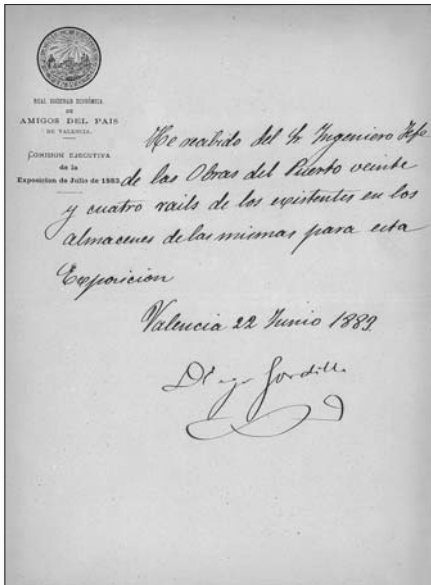 REAL SOCIEDAD ECONÓMICA
DE
AMIGOS DEL PAIS
DE VALENCIA.
COMISION EJECUTIVA
de la
Exposicion de Julio de 1883.
He recibido del Sr Ingeniero Jefe
de las Obras del Puerto veinte
y cuatro rails de los existentes en los
almacenes de las mismas para esta
Exposicion
Valencia 22 Junio 1883.
Diego Gordillo